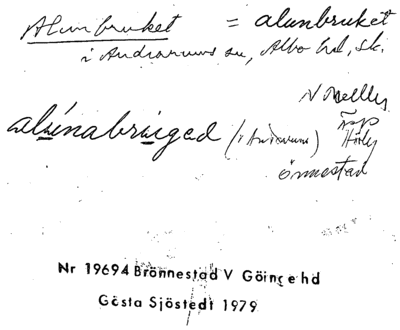 Alunbruket = alunbruket
i Andrarums sn, Albo hd, Sk.
N Melby
alúnabrúged (i Andrarum) Hörby
Önnestad
Nr 19694 Brönnestad V Göinge hd
Gösta Sjöstedt 1979